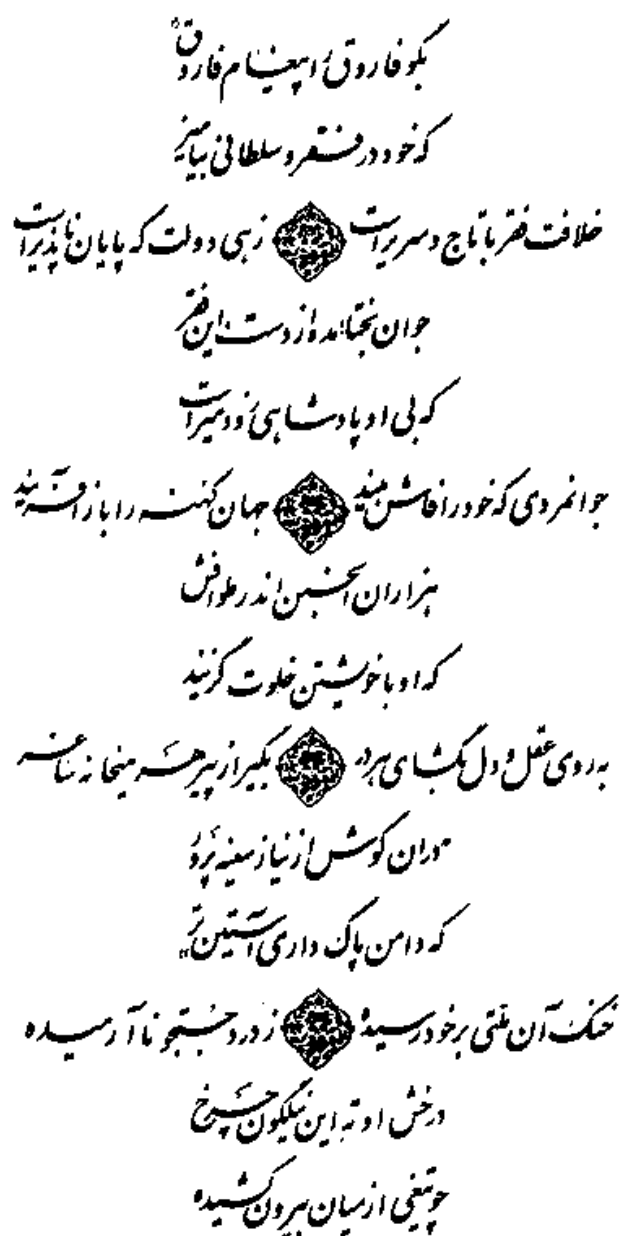 بگو فاروق را پیغام فاروق
که خود در فقر و سلطانی بیامیز
خلافت فقر با تاج و سریر است زهی دولت که پایان ناپذیر است
جوان بختا مده از دست این فقر
که بی او پادشاهی زود میر است
جوانمردی که خود را فاش بیند جهان کهنه را باز آفریند
هزاران انجمن اندر طوافش
که او با خویشتن خلوت گزیند
به روی عقل و دل بگشای هر در بگیر از پیر هر میخانه ساغر
دران کوش از نیاز سینه پرور
که دامن پاک داری آستین تر
خنک آن ملتی بر خود رسیده ز درد جستجو نا آرمیده
درخش او ته این نیلگون چرخ
چو تیغی از میان بیرون کشیده